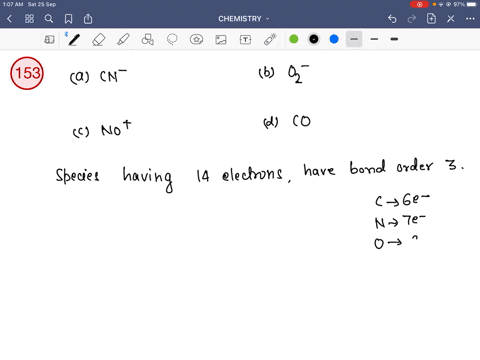 1:07 AM Sat 25 Sep
97%
CHEMISTRY
153
(a) CN⁻
(b) O₂⁻
(c) NO⁺
(d) CO
Species having 14 electrons, have bond order 3.
C → 6e⁻
N → 7e⁻
O →